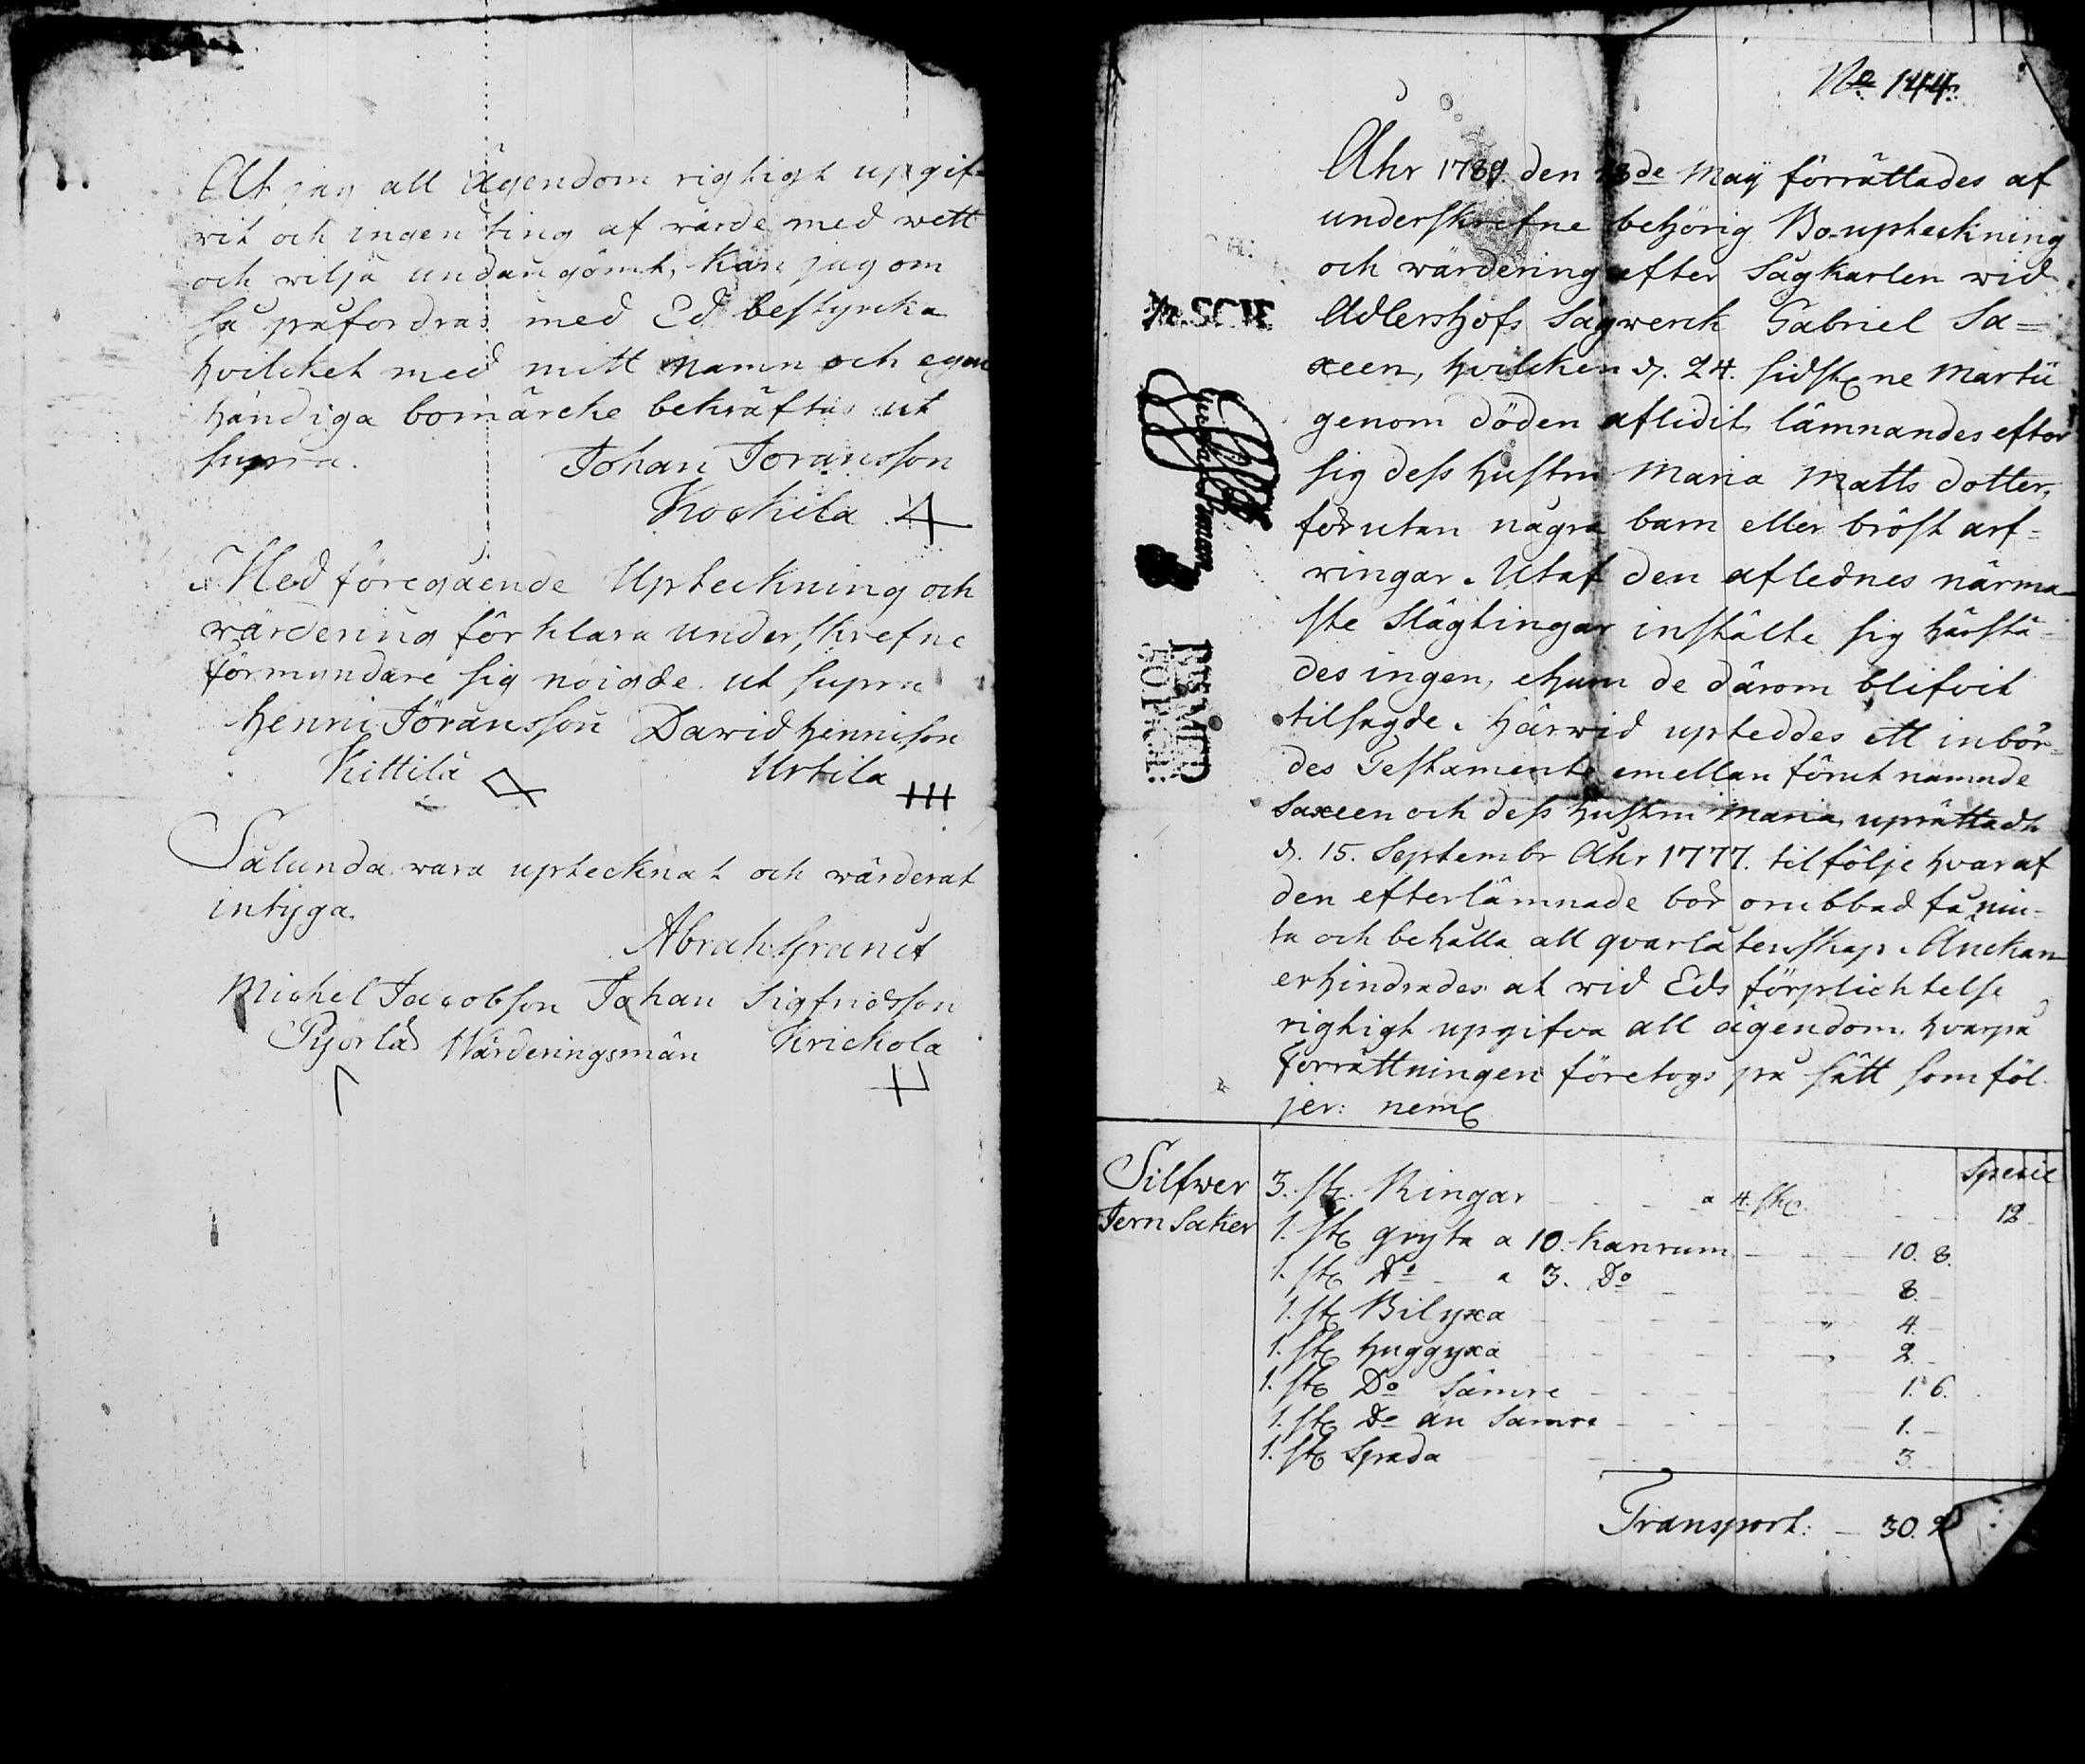 Att jag all Ägendom rigtigt upgif-
vit och ingen ting af värde med wett
och vilja undangömt, kan jag om
så påfordras med Ed bestyrcka
hvilcket med mitt namn och egen
händiga bomärcke bekräftas ut
supra. Johan Jöransson
Kockila
Med föregående Upteckning och
värdering förklara underskrefne
förmyndare sig nöigde ut supra
Henric Jöransson David Hennison
Kittilä Urtila
Sålunda vara uptecknat och värderat
intyga.
Abrah Granet
Michel Jacobson Johan Sigfridsson
Pyörlä Värderingsmän Krickola
No 144.
Åhr 1789 den 13de Maÿ förrättades af
underskrefne behörig Bo-upteckning
och wärdering efter Sågkarlen wid
Adlershofs Sågwerck Gabriel Sa=
xeen, hvilcken d. 24. sidstne Martii
genom döden aflidit, lämnandes efter
sig dess hustru Maria Matts dotter,
förutan några barn eller bröst arf=
ringar. Utaf den aflednes närma-
ste Slägtingar instälte sig härstä-
des ingen, ehuru de därom blifvit
tilsagde. Härwid upteddes ett inbör=
des Testamente emellan förut nämnde
Saxeen och dess hustru Maria, uprättadt
d. 15. Septembr Åhr 1777. til följe hvaraf
den efterlämnade bör orubbad få niu-
ta och behålla all qvarlåtenskap. Änckan
erhindrades at wid Eds förplichtelse
rigtigt upgifva all ägendom, hvarpå
förrättningen företogs på sätt som föl-
jer: neml
Specie
Silfwer 3. st. Ringar a 4. sk. 12
Jern Saker 1. st gryta a 10. kanrum 10. 8.
1. st Do a 3. Do 8.
1. st Bilyxa 4.
1. st Huggyxa 2.
1. st Do sämre 1. 6.
1. st Do än sämre 1.
1. st Spada 3.
Transport: 30. 2